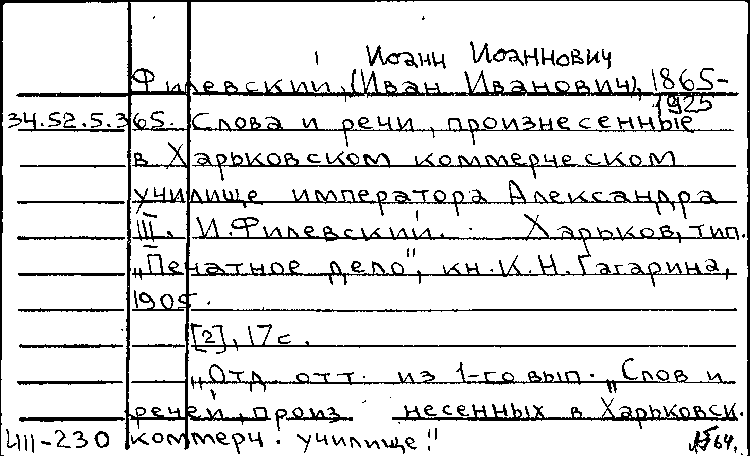 Иоанн Иоаннович
Филевский, (Иван Иванович), 1865-
1925
34.52.5.365. Слова и речи, произнесенные
в Харьковском коммерческом
училище императора Александра
III. И. Филевский. Харьков, тип.
„Печатное дело", кн. К.Н. Гагарина,
1905.
[2], 17с.
„Отд. отт. из 1-го вып. „Слов и
речей, произ несенных в Харьковск.
коммерч. училище."
64.